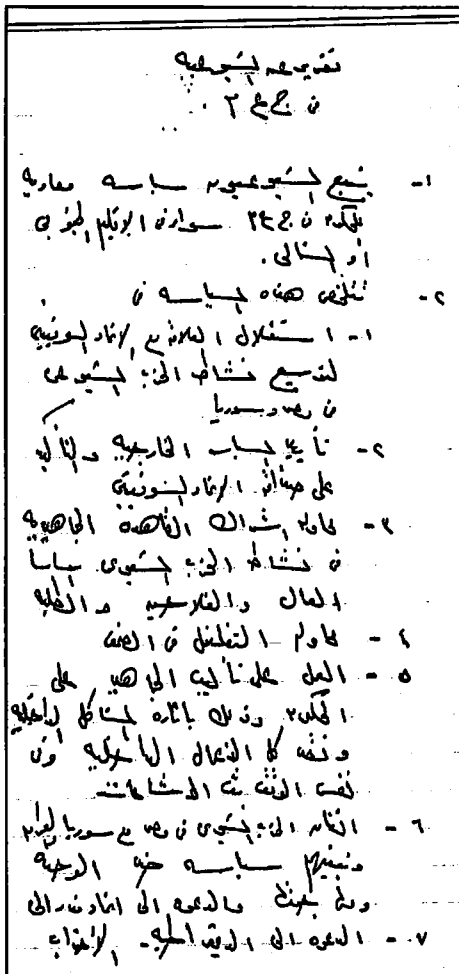 تقرير عن الشيوعيه
فى ج ع م .
١- يتبع الشيوعيون سياسه معاديه
للحكم فى ج ع م سواء فى الاقليم الجنوبى
أو الشمالى .
٢- تتلخص هذه السياسه فى
١- استغلال العلاقه مع الاتحاد السوفييتى
لتوسيع نشاط الحزب الشيوعى
فى مصر وسوريا
٢- تأييد السياسه الخارجيه والتأكيد
على صداقة الاتحاد السوفييتى
٣- محاولة اشراك القاعدة الجماهيريه
فى نشاط الحزب الشيوعى سياسياً
العمال والفلاحين والطلبه
٤- محاولة التغلغل فى الصحف
٥- العمل على تأليب الجماهير على
الحكم وذلك باثارة المشاكل الداخليه
ونقد كل الاعمال الداخليه وفى
نفس الوقت بث الاشاعات
٦- اتفاق الحزب الشيوعى فى مصر مع سوريا
وتبنيهم سياسه ضد الوحدة
والدعوه الى اتحاد فدرالى
٧- الدعوه الى الديمقراطيه - الأحزاب